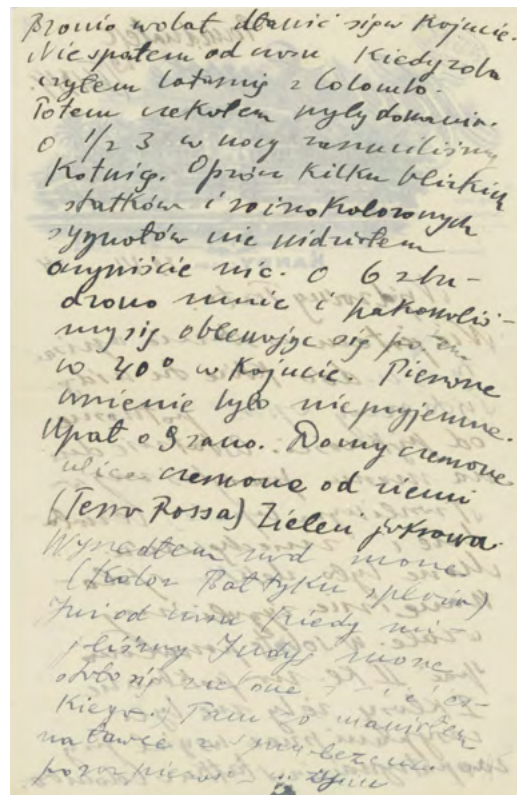 Bronio wolał dławić się w Kajucie.
Nie spałem od czasu Kiedy zoba
czyłem latarnię z Colombo.
Potem czekałem
O 1/2 3 w nocy zarzuciliśmy
Kotwicę. Oprócz Kilku bliskich
statków i różnokolorowych
sygnałów nie widziałem
oczywiście nic. O 6 zbu-
dzono mnie i pakowaliś-
my się oblewając się potem
w 40° w Kajucie. Pierwsze
wrażenie było nieprzyjemne.
Upał o 9 rano. Domy czerwone
ulice czerwone od ziemi
(Terra Rossa) Zieleń jaskrawa
Wyszedłem nad morze
(Kolor Bałtyku
Już od czasu Kiedy mi-
jaliśmy Indy morze
stało się zielone
Kiego. Tam
na ławce
pierwszy w życiu